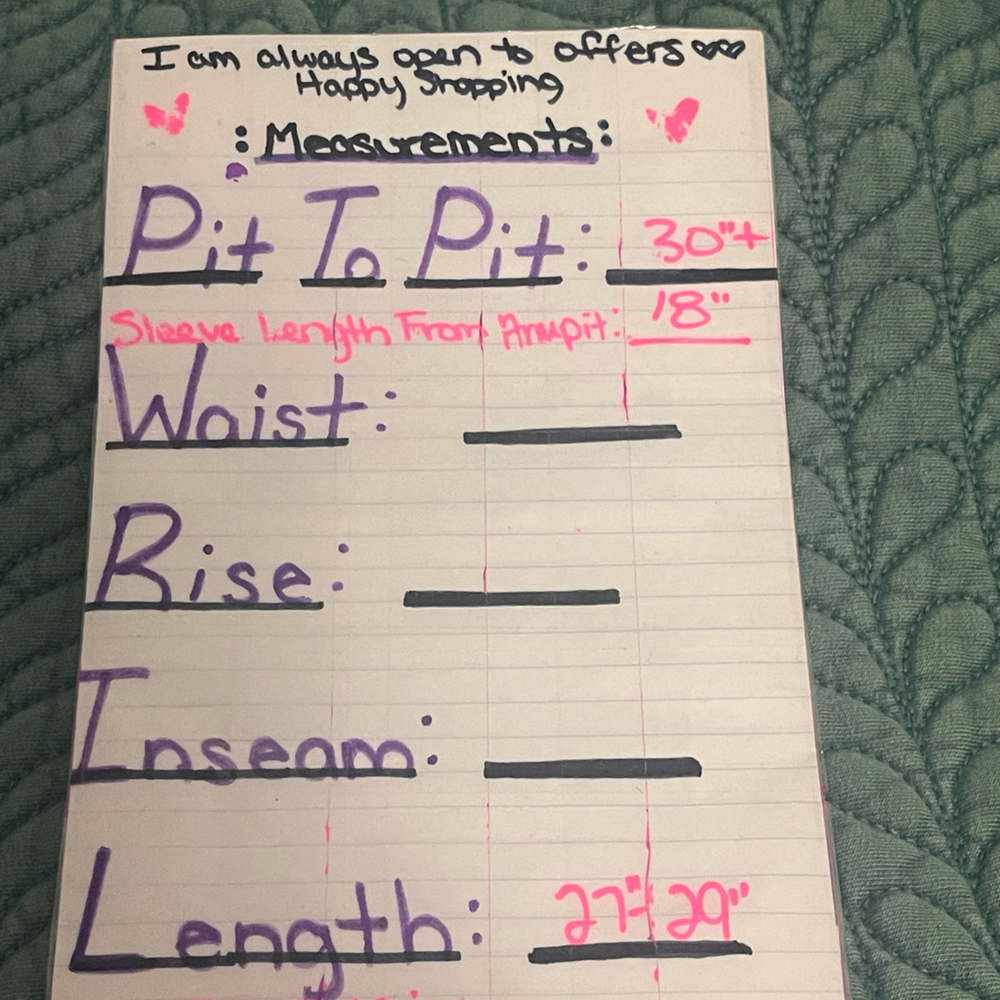 I am always open to offers ♡♡
Happy Shopping
:Measurements:
Pit To Pit: 30"+
Sleeve Length From Armpit: 18"
Waist:
Rise:
Inseam:
Length: 27"-29"